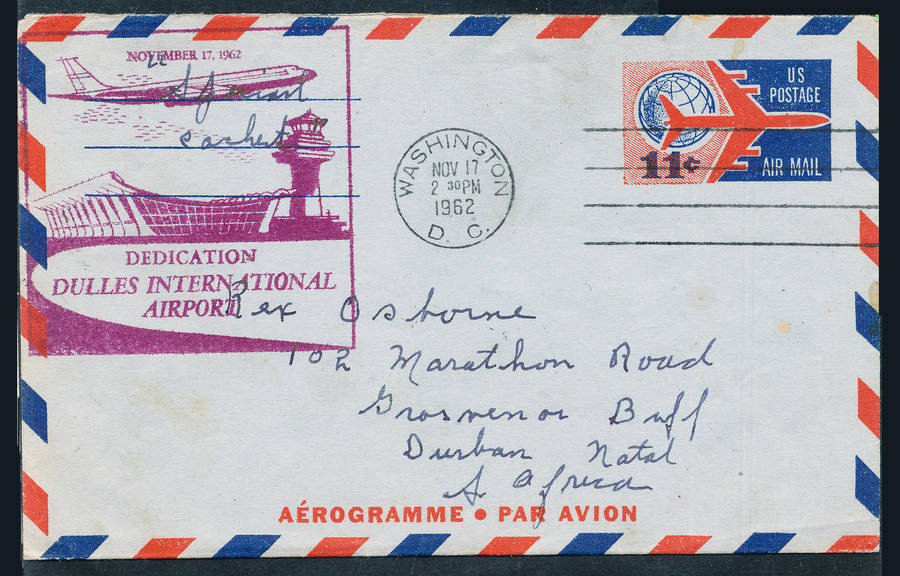 NOVEMBER 17, 1962
sachet"
DEDICATION
DULLES INTERNATIONAL
AIRPORT
WASHINGTON
NOV 17
2 30PM
1962
D. C.
US
POSTAGE
11¢
AIR MAIL
Rex Osborne
102 Marathon Road
Grosvenor Buff
Durban Natal
S Africa
AÉROGRAMME • PAR AVION